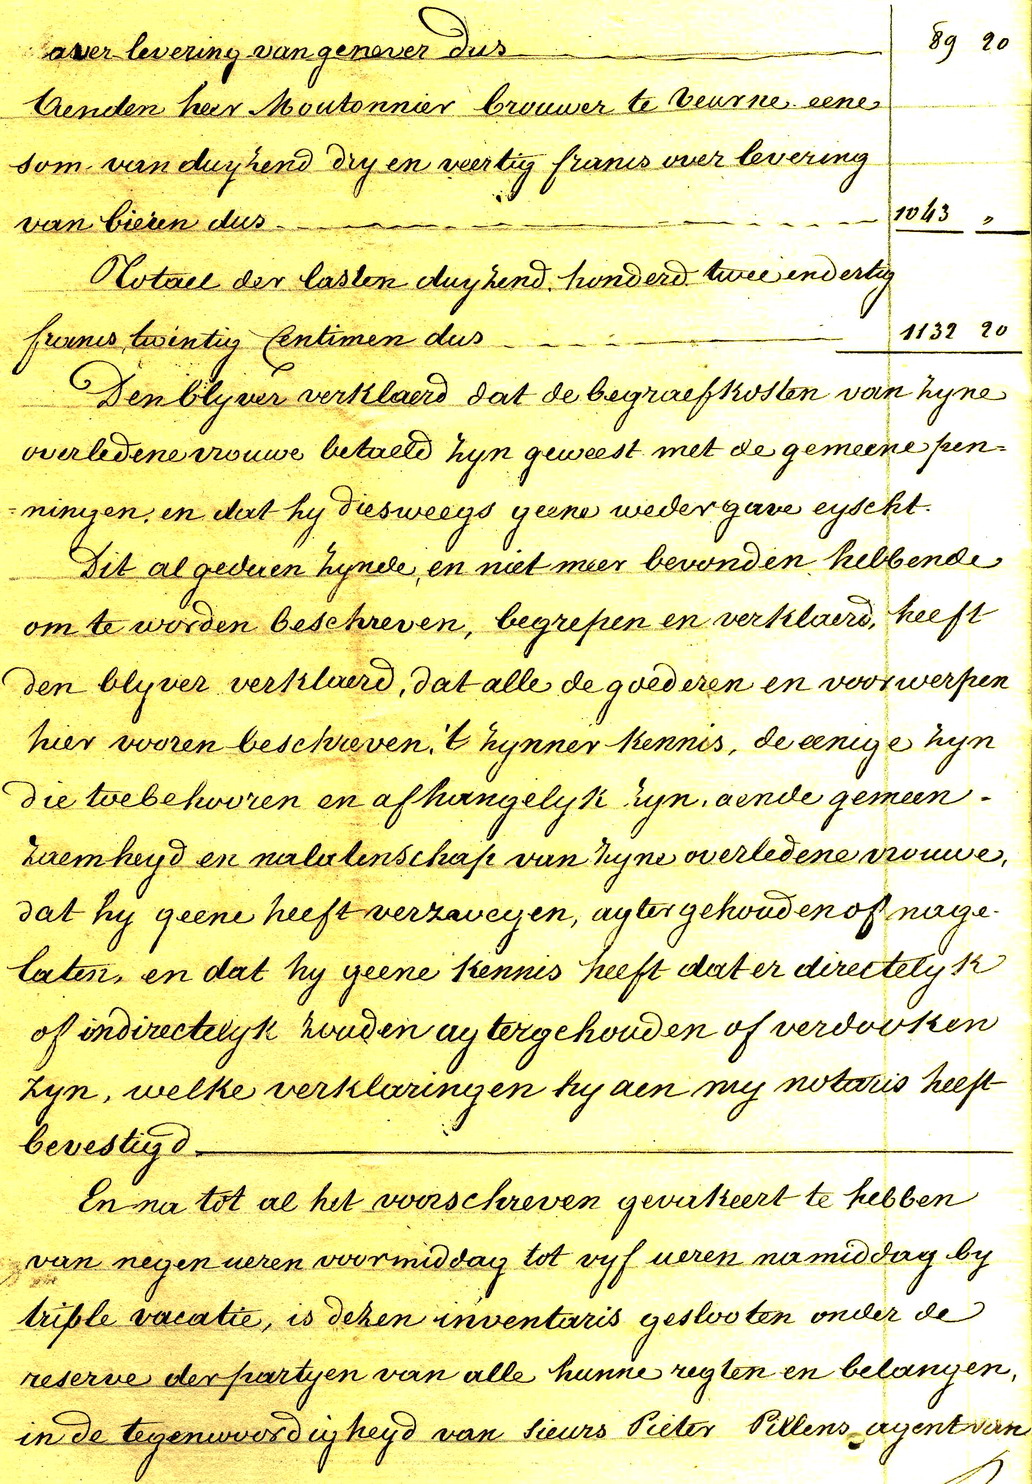 over levering van genever dus 89 20
t'aenden heer Moutonnier brouwer te veurne eene
som van duyzend dry en veertig francs over levering
van bieren dus 1043 "
Totael der lasten duyzend honderd twee en dertig
francs twintig Centimen dus 1132 20
Den blyver verklaerd dat de begraefkosten van zyne
overledene vrouwe betaeld zyn geweest met de gemeene pen=
=ningen, en dat hy dieswegs geene wedergave eyscht.
Dit al gedaen zynde, en niet meer bevonden hebbende
om te worden beschreven, begrepen en verklaerd, heeft
den blyver verklaerd, dat alle de goederen en voorwerpen
hier vooren beschreven, 't zynner kennis, de eenige zyn
die toebehooren en afhangelyk zyn, aende gemeen-
zaemheyd en nalatenschap van zyne overledene vrouwe,
dat hy geene heeft verzwegen, agtergehouden of nage-
laten, en dat hy geene kennis heeft dat er directelyk
of indirectelyk zouden agtergehouden of verdooken
zyn, welke verklaringen hy aen my notaris heeft
bevestigd
En na tot al het voorschreven gevakeert te hebben
van negen ueren voormiddag tot vyf ueren namiddag by
triple vacatie, is dezen inventaris geslooten onder de
reserve der partyen van alle hunne regten en belangen,
in de tegenwoordigheyd van sieurs Pieter Pillens agent van